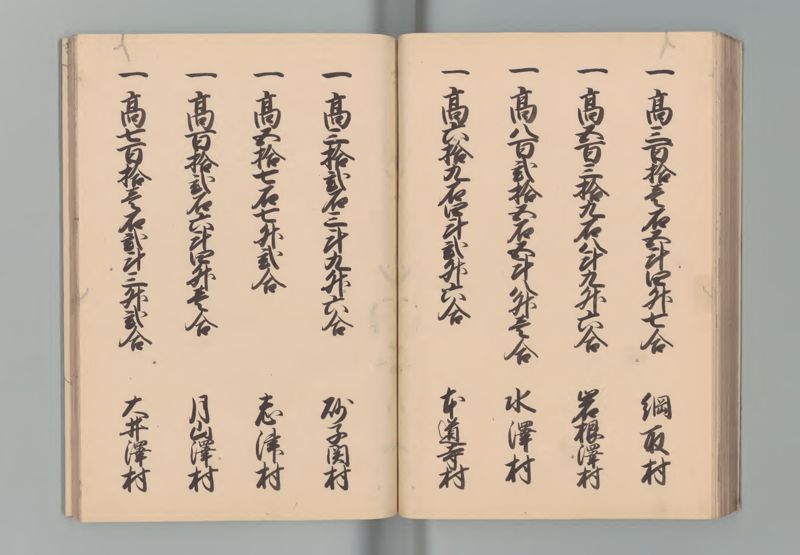 一 高三百拾壱石五斗四升七合 綱取村
一 高五百三拾九石八斗九升六合 岩根澤村
一 高八百弐拾五石五斗八升壱合 水澤村
一 高六拾九石四斗弐升六合 本道寺村
一 高三拾弐石三斗九升六合 砂子関村
一 高五拾七石七升弐合 志津村
一 高百拾弐石六斗四升壱合 月山澤村
一 高七百拾壱石弐斗三升弐合 大井澤村